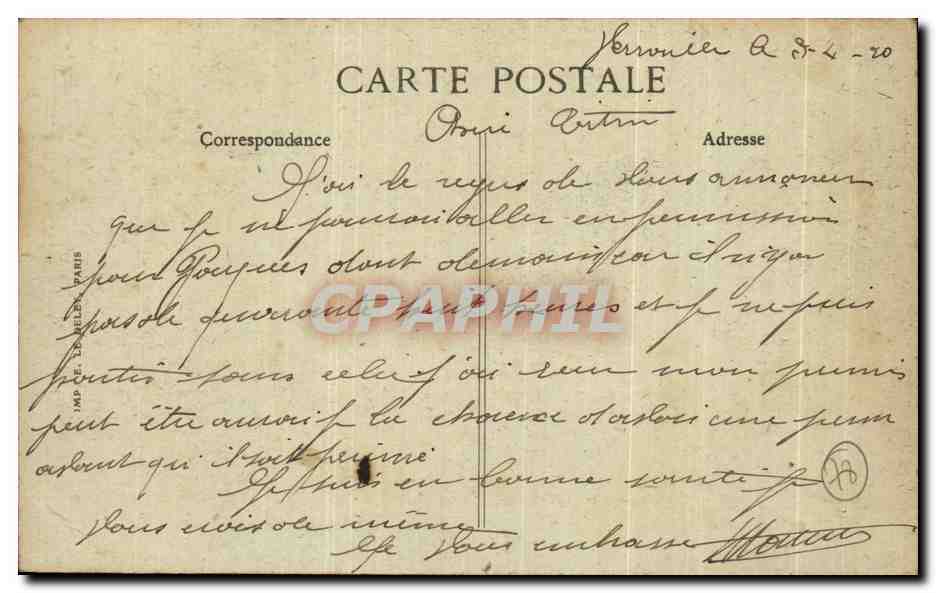 A 3-4-20
CARTE POSTALE
Correspondance
Adresse
J'ai le regret de vous annoncer
que je ne pourrai aller en permission
pour Pâques dont demain car il n'y a
pas de quarante huit heures et je ne puis
partir sans cela j'ai reçu mon
peut être aurai je la chance d'avoir une perm
avant qu'il soit périmé
Je suis en bonne santé je
vous crois de même
Je vous embrasse
78
IMP. LE DELEY, PARIS
CPAPHIL